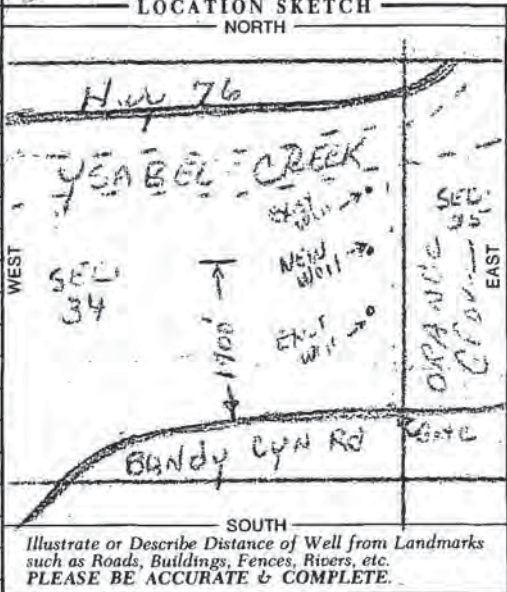 LOCATION SKETCH
NORTH
Hwy 76
YSABEL CREEK
WEST
SEC. 34
NEW Well
Well
1900'
SEC.
ORANGE
EAST
BANDY CYN Rd
SOUTH
Illustrate or Describe Distance of Well from Landmarks
such as Roads, Buildings, Fences, Rivers, etc.
PLEASE BE ACCURATE & COMPLETE.